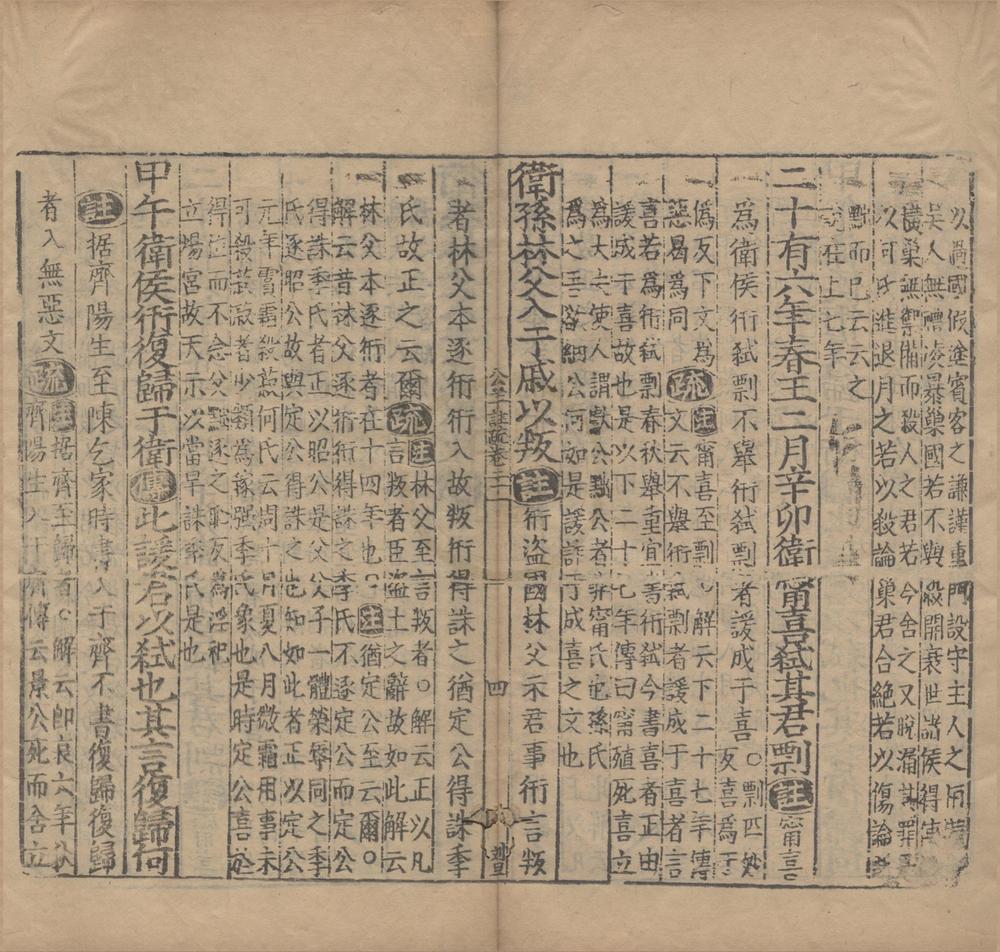 以過國假塗賓客之謙謹重門設守主人之所
吳人無禮凌暴巢國若不與殺開衰世諸侯得
巢無禦備而殺人之君若今舍之又脫漏其罪
以何氏進退月之若以殺論巢君合絕若以傷論
而已云云之
在上七年
二十有六年春王二月辛卯衛甯喜弒其君剽註甯喜
為衛侯衎弒剽不舉衎弒剽者諼成于喜○剽匹妙
反喜為于
偽反下文為
惡曷為同疏註甯喜至剽○解云下二十七年傳
文云不舉衎弒剽者諼成于喜者言
喜若為衎弒剽春秋舉重宜書衎弒今書喜者正由
諼成于喜故也是以下二十七年傳曰甯殖死喜立
為大夫使人謂獻公獻公者非甯氏也孫氏
為之吾欲納公何如是諼許乃成喜之文也
衛孫林父入于戚以叛註衎盜國林父示君事衎言叛
者林父本逐衎衎入故叛衎得誅之猶定公得誅季
氏故正之云爾疏註林父至言叛者○解云正以凡
言叛者臣盜土之辭故如此解云
林父本逐衎者在十四年也○註猶定公至云爾○
解云昔林父逐衎衎得誅之季氏不逐定公而定公
得誅季氏者正以昭公是父公子一體榮辱同之季
氏逐昭公故與定公得誅之也知如此者正以定公
元年霣霜殺菽何氏云周十月夏八月微霜用事未
可殺菽菽者少類為稼强季氏象也是時定公喜於
得位而不念父黜逐之恥反為淫祀
立煬宮故天示以當早誅季氏是也
甲午衛侯衎復歸于衛傳此諼君以弒也其言復歸何
註据齊陽生至陳乞家時書入于齊不書復歸復歸
者入無惡文疏註据齊至歸者○解云即哀六年秋
齊陽生入于齊傳云景公死而舍立
公羊註疏卷二一
四